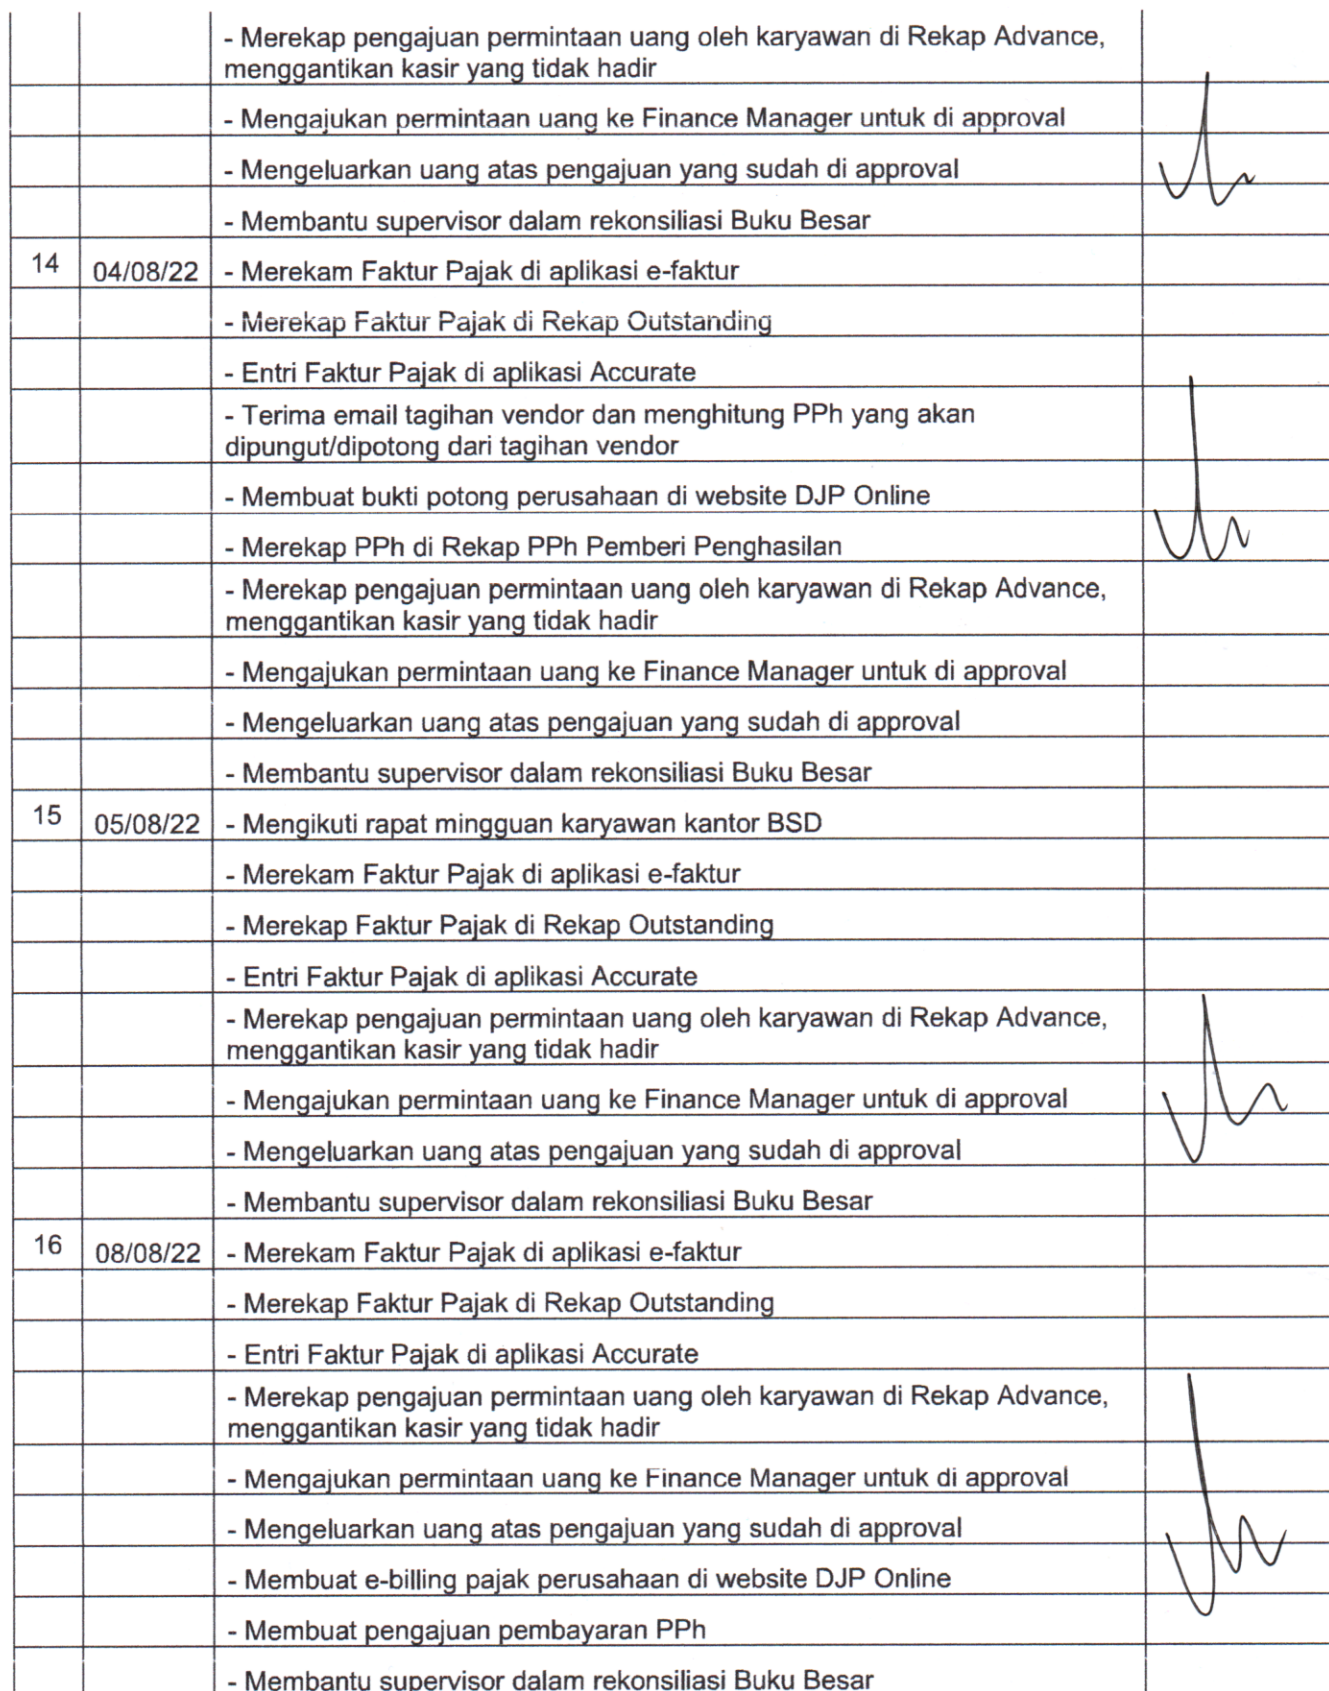 - Merekap pengajuan permintaan uang oleh karyawan di Rekap Advance,
menggantikan kasir yang tidak hadir
- Mengajukan permintaan uang ke Finance Manager untuk di approval
- Mengeluarkan uang atas pengajuan yang sudah di approval
- Membantu supervisor dalam rekonsiliasi Buku Besar
14 04/08/22 - Merekam Faktur Pajak di aplikasi e-faktur
- Merekap Faktur Pajak di Rekap Outstanding
- Entri Faktur Pajak di aplikasi Accurate
- Terima email tagihan vendor dan menghitung PPh yang akan
dipungut/dipotong dari tagihan vendor
- Membuat bukti potong perusahaan di website DJP Online
- Merekap PPh di Rekap PPh Pemberi Penghasilan
- Merekap pengajuan permintaan uang oleh karyawan di Rekap Advance,
menggantikan kasir yang tidak hadir
- Mengajukan permintaan uang ke Finance Manager untuk di approval
- Mengeluarkan uang atas pengajuan yang sudah di approval
- Membantu supervisor dalam rekonsiliasi Buku Besar
15 05/08/22 - Mengikuti rapat mingguan karyawan kantor BSD
- Merekam Faktur Pajak di aplikasi e-faktur
- Merekap Faktur Pajak di Rekap Outstanding
- Entri Faktur Pajak di aplikasi Accurate
- Merekap pengajuan permintaan uang oleh karyawan di Rekap Advance,
menggantikan kasir yang tidak hadir
- Mengajukan permintaan uang ke Finance Manager untuk di approval
- Mengeluarkan uang atas pengajuan yang sudah di approval
- Membantu supervisor dalam rekonsiliasi Buku Besar
16 08/08/22 - Merekam Faktur Pajak di aplikasi e-faktur
- Merekap Faktur Pajak di Rekap Outstanding
- Entri Faktur Pajak di aplikasi Accurate
- Merekap pengajuan permintaan uang oleh karyawan di Rekap Advance,
menggantikan kasir yang tidak hadir
- Mengajukan permintaan uang ke Finance Manager untuk di approval
- Mengeluarkan uang atas pengajuan yang sudah di approval
- Membuat e-billing pajak perusahaan di website DJP Online
- Membuat pengajuan pembayaran PPh
- Membantu supervisor dalam rekonsiliasi Buku Besar